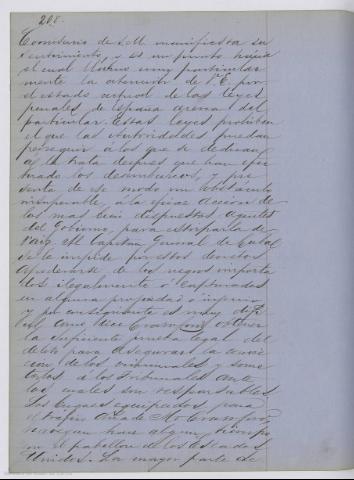 208.
Comisario de S.M. manifiesta su
sentimiento, y es un punto hácia
el cual llamo muy particular
mente la atencion de V.E. por
el estado actual de las leyes
penales de España acerca del
particular. Estas leyes prohiben
el que las autoridades puedan
perseguir á los que se dedican
á la trata despues que han efec
tuado los desembarcos, y pre
senta de ese modo un obstáculo
insuperable, á la eficaz accion de
los mas bien dispuestos agentes
del Gobierno, para estirparla de
raiz. Al Capitan General de Cuba
se le impide por estos decretos
apoderarse de los negros importa
dos ilegalmente ó capturados
en alguna propiedad ó ingenio
y por consiguiente es muy difi
cil, como dice Crawford obtener
la suficiente prueba legal del
delito para asegurar la convic
cion de los criminales y some
terlos á los Tribunales ante
los cuales son responsables
Los buques equipados para
el tráfico añade Mr Crawford,
navegan hace algun tiempo
con el pabellon de los Estados
Unidos. La mayor parte de